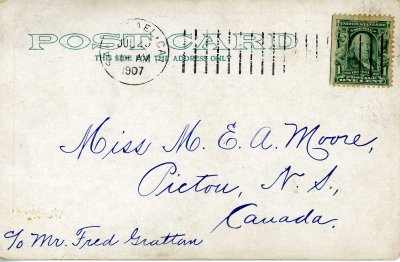 POST CARD
THIS SIDE FOR THE ADDRESS ONLY
CAL
JUL
AM
1907
Miss M. E. A. Moore,
Picton, N. S.,
Canada.
c/o Mr. Fred Grattan